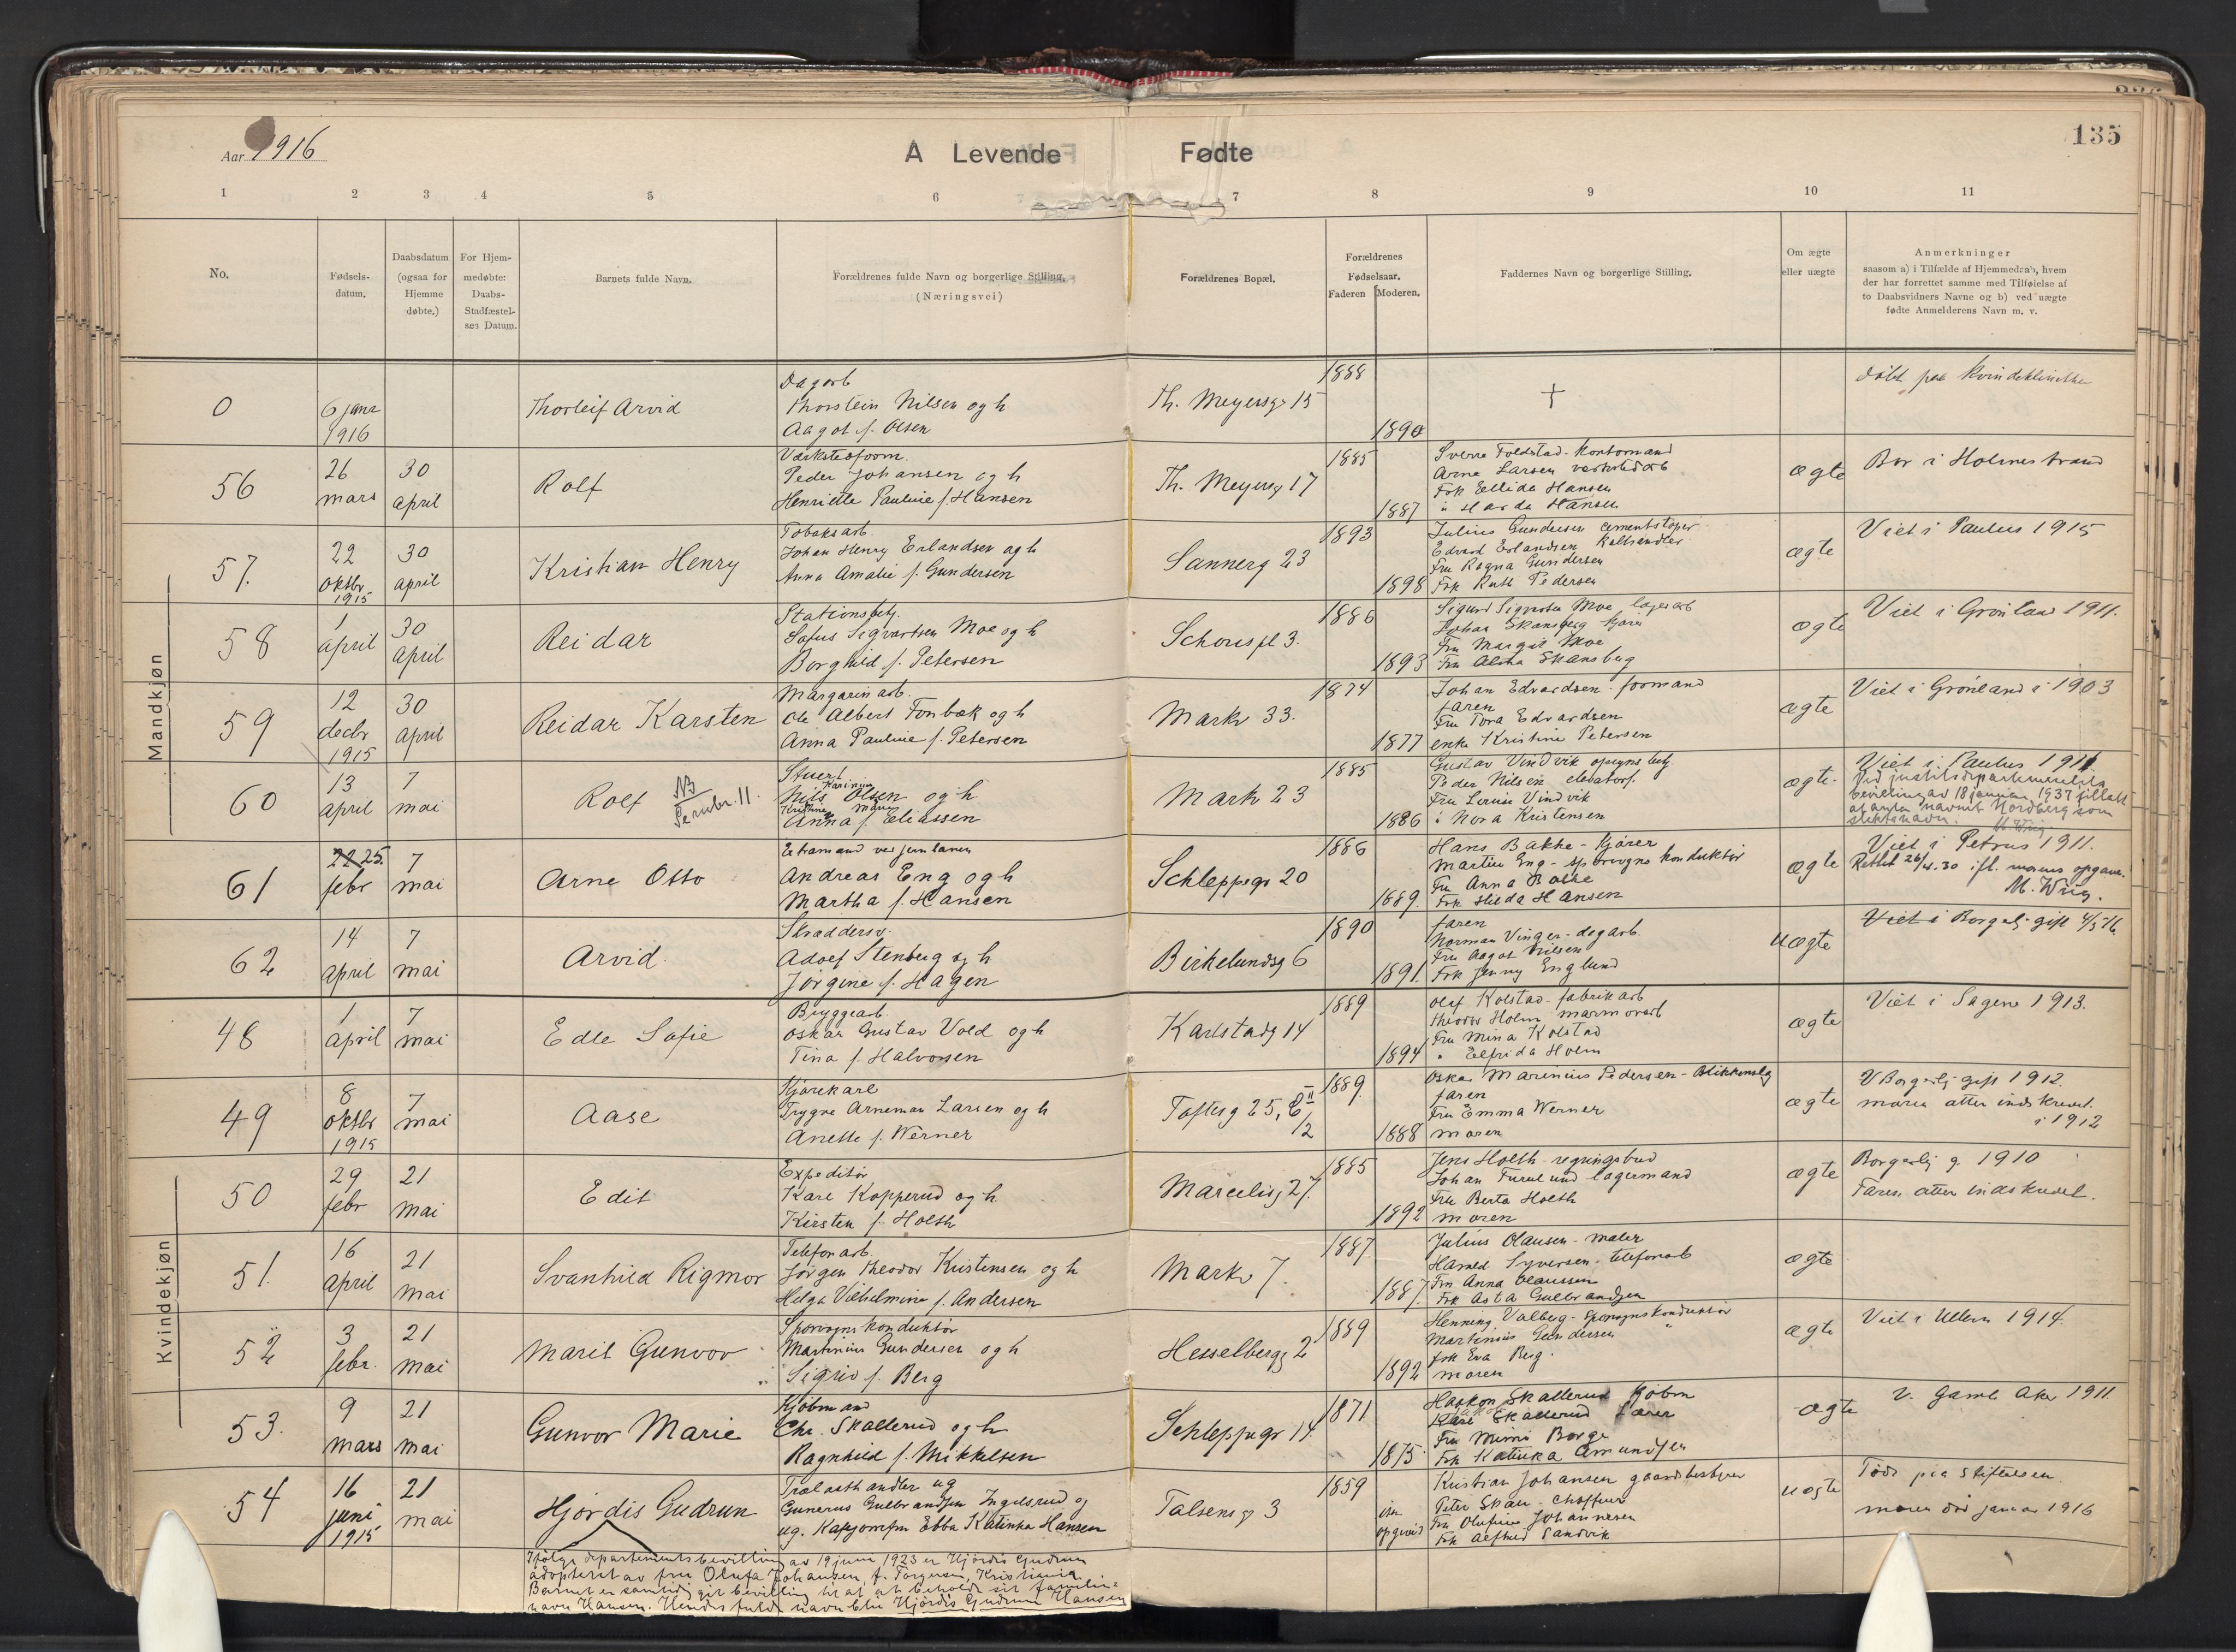 135
Aar 1916
A Levende Fødte
1 2 3 4 5 6 7 8 9 10 11
No.
Fødsels-
datum.
Daabsdatum
(ogsaa for
Hjemme
døbte.)
For Hjem-
medøbte:
Daabs-
Stadfæstel-
ses Datum.
Barnets fulde Navn.
Forældrenes fulde Navn og borgerlige Stilling.
(Næringsvei)
Forældrenes Bopæl.
Forældrenes
Fødselsaar.
Faderen Moderen.
Faddernes Navn og borgerlige Stilling.
Om ægte
eller uægte
Anmerkninger
saasom a) i Tilfælde af Hjemmedaab, hvem
der har forrettet samme med Tilføielse af
to Daabsvidners Navne og b) ved uægte
fødte Anmelderens Navn m. v.
Mandkjøn
0
6 janr
1916
Thorleif Arvid
Dagarb
Thorstein Nilsen og h
Aagot f. Olsen
Th. Meyersg 15
1888
1890
†
døbt paa Kvindeklinikken
56
26
mars
30
april
Rolf
Verkstedform.
Peder Johansen og h
Henriette Pauline f. Hansen
Th. Meyersg 17
1885
1887
Sverre Foldstad - Kontormand
Arne Larsen verkstedarb
Frk Ellida Hansen
" Hansen
ægte
Bor i Holmestrand
57.
22
oktbr
1915
30
april
Kristian Henry
Tobaksarb.
Johan Henry Erlandsen og h
Anna Amalie f. Gundersen
Sannerg 23
1893
1898
Julius Gundersen cementstøper
Edvard Erlandsen
Fru Ragna Gundersen
Frk Ruth Pedersen
ægte
Viet i Paulus 1915
58
1
april
30
april
Reidar
Stationsbetj.
Sofus Sigvartsen Moe og h
Borghild f. Petersen
Schouspl 3.
1886
1893
Sigurd Sigvartsen Moe, lagerarb
Johan Skansberg kjører
Fru Margit Moe
Fru Skansberg
ægte
Viet i Grønland 1911.
59
12
decbr
1915
30
april
Reidar Karsten
Margarinarb.
Ole Albert Fonbæk og h
Anna Pauline f. Petersen
Markv 33.
1874
1877
Johan Edvardsen - formand
faren
Fru Tora Edvardsen
enke Kristine Petersen
ægte
Viet i Grønland i 1903
60
13
april
7
mai
Rolf
NB
Stuert
Nils Olsen og h
Anna f. Eliassen
Mark 23
1885
1886
Gustav Vindvik opsynsbetj.
Peder Nilsen elevatorf.
Fru Louise Vindvik
" Nora Kristensen
ægte
Viet i Paulus 1911.
Ved justitsdepartementets
bevilling av 18 januar 1937 tillatt
at anta navnet Nordberg som
slektsnavn. M. Wiig.
61
22 25.
febr
7
mai
Arne Otto
Extramand ved jernbanen
Andreas Eng og h
Martha f. Hansen
Schleppegr 20
1886
1889.
Hans Bakke - Kjører
Martin Eng - sporvogns konduktør
Fru Anna Bakke
Frk Hilda Hansen
ægte
Viet i Petrus 1911.
Rettet 26/4.30 ifl. morens opgave.
M. Wiig.
62
14
april
7
mai
Arvid.
Skræddersv.
Adolf Stenberg og h
Jørgine f. Hagen
Birkelundsg 6
1890
1891.
faren
Norman Vinger - dagarb.
Fru Aagot Nilsen
Frk Jenny Englund
uægte
Viet i Borgerlj. gift 4/5 16
48
1
april
7
mai
Edle Sofie
Bryggearb
Oskar Gustav Vold og h
Tina f. Halvorsen
Karlstadg 14
1889
1894
Olaf Kolstad - fabrikarb
Theodor Holm marmorarb
Fru Mina Kolstad
" Elfrida Holm
ægte
Viet i Sagene 1913.
49
8
oktbr
1915
7
mai
Aase
Kjørekarl
Trygve Arneman Larsen og h
Anette f. Werner
Toftesg 25,
1889.
1888
Oskar Marinius Pedersen - Blikkenslg
faren
Fru Emma Werner
moren
ægte
V Borgerlj gift 1912.
moren atter indskrevet.
i 1912
Kvindekjøn
50
29
febr
21
mai
Edit
Expeditør
Karl Kopperud og h
Kirsten f. Holth
Marcelisg 27.
1885
1892
Jens Holth - regningsbud
Johan Furulund lagermand
Fru Berta Holth
moren
ægte
Borgerlj g. 1910
Faren atter indskrevet.
51.
16
april
21
mai
Svanhild Rigmor
Telefonarb.
Jørgen Theodor Kristensen og h
Helga Vilhelmine f. Andersen
Markv 7.
1887
1887.
Julius Olausen - maler
Harald Syversen - telefonarb
Fru Anna Olaussen
Frk Asta Gulbrandsen
ægte
52
3
febr.
21
mai
Marit Gunvor
Sporvognskonduktør
Martinius Gundersen og h
Sigrid f. Berg
Hesselbergg 2
1889
1892
Henning Valberg - sporvognskonduktør
Martinius Gundersen "
frk Eva Berg.
moren
ægte
Viet i Ullern 1914
53.
9
mars
21
mai
Gunvor Marie
Kjøbmand
Chr. Skallerud og h
Ragnhild f. Mikkelsen
Schleppegr 14.
1871
1875.
Haakon Skallerud Kjøbm
Skallerud Lærer
Fru Mimi Borge
Frk Katinka Amundsen
ægte
V. Gaml Aker 1911.
54
16
juni
1915
21
mai
Hjørdis Gudrun
Trælasthandler ug
Gunerius Gulbrandsen Ingelsrud og
ug. Ebba Katinka Hansen
Talsensg 3
1859
opgivd
Kristian Johansen gaardbestyrer
Peter Skau - Chaffeur
Fru Olufine Johannesen
Frk Alfhild Sandvik
uægte
Født paa Stiftelsen.
moren død januar 1916
Ifølge departementsbevilling av 19 juni 1923 er Hjørdis Gudrun
adopteret av fru Olufa Johansen, f. Torgersen, Kristiania.
Barnet er samtidig git bevilling til at beholde sit familie-
navn Hansen. Hendes fulde navn blir Hjørdis Gudrun Hansen